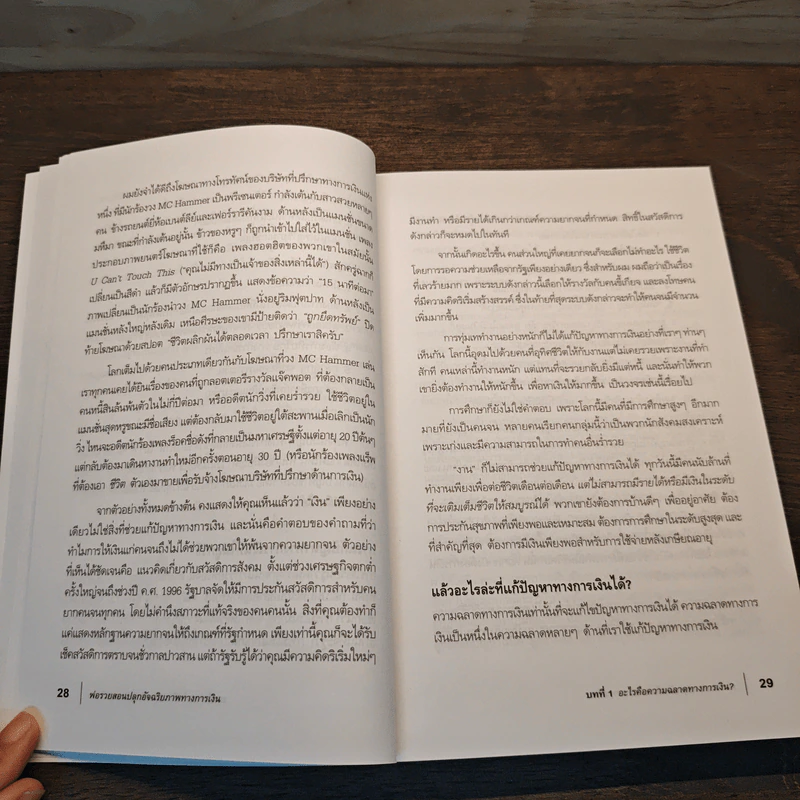 ผมยังจำได้ดีถึงโฆษณาทางโทรทัศน์ของบริษัทที่ปรึกษาทางการเงินแห่ง
หนึ่ง ที่มีนักร้องวง MC Hammer เป็นพรีเซนเตอร์ กำลังเต้นกับสาวสวยหลายๆ
คน ข้างรถยนต์ยี่ห้อเบนต์ลีย์และเฟอร์รารีคันงาม ด้านหลังเป็นแมนชั่นขนาด
มหึมา ขณะที่กำลังเต้นอยู่นั้น ข้าวของหรูๆ ก็ถูกนำเข้าไปใส่ไว้ในแมนชั่น เพลง
ประกอบภาพยนตร์โฆษณาที่ใช้ก็คือ เพลงฮอตฮิตของพวกเขาในสมัยนั้น
U Can't Touch This ("คุณไม่มีทางเป็นเจ้าของสิ่งเหล่านี้ได้") สักครู่ฉากก็
เปลี่ยนเป็นสีดำ แล้วก็มีตัวอักษรปรากฏขึ้น แสดงข้อความว่า "15 นาทีต่อมา"
ภาพเปลี่ยนเป็นนักร้องนำวง MC Hammer นั่งอยู่ริมฟุตปาท ด้านหลังเป็น
แมนชั่นหลังใหญ่หลังเดิม เหนือศีรษะของเขามีป้ายติดว่า "ถูกยึดทรัพย์" ปิด
ท้ายโฆษณาด้วยสปอต "ชีวิตผลิกผันได้ตลอดเวลา ปรึกษาเราสิครับ"
โลกเต็มไปด้วยคนประเภทเดียวกันกับโฆษณาที่วง MC Hammer เล่น
เราทุกคนเคยได้ยินเรื่องของคนที่ถูกลอตเตอรีรางวัลแจ๊คพอต ที่ต้องกลายเป็น
คนหนี้สินล้นพ้นตัวในไม่กี่ปีต่อมา หรืออดีตนักวิ่งที่เคยร่ำรวย ใช้ชีวิตอยู่ใน
แมนชั่นสุดหรูขณะมีชื่อเสียง แต่ต้องกลับมาใช้ชีวิตอยู่ใต้สะพานเมื่อเลิกเป็นนัก
วิ่ง ไหนจะอดีตนักร้องเพลงร็อคชื่อดังที่กลายเป็นมหาเศรษฐีตั้งแต่อายุ 20 ปีต้นๆ
แต่กลับต้องมาเดินหางานทำใหม่อีกครั้งตอนอายุ 30 ปี (หรือนักร้องเพลงแร็พ
ที่ต้องเอา ชีวิต ตัวเองมาขายเพื่อรับจ้างโฆษณาบริษัทที่ปรึกษาด้านการเงิน)
จากตัวอย่างทั้งหมดข้างต้น คงแสดงให้คุณเห็นแล้วว่า "เงิน" เพียงอย่าง
เดียวไม่ใช่สิ่งที่ช่วยแก้ปัญหาทางการเงิน และนั่นคือคำตอบของคำถามที่ว่า
ทำไมการให้เงินแก่คนจนถึงไม่ได้ช่วยพวกเขาให้พ้นจากความยากจน ตัวอย่าง
ที่เห็นได้ชัดเจนคือ แนวคิดเกี่ยวกับสวัสดิการสังคม ตั้งแต่ช่วงเศรษฐกิจตกต่ำ
ครั้งใหญ่จนถึงช่วงปี ค.ศ. 1996 รัฐบาลจัดให้มีการประกันสวัสดิการสำหรับคน
ยากคนจนทุกคน โดยไม่คำนึงสภาวะที่แท้จริงของคนคนนั้น สิ่งที่คุณต้องทำก็
แค่แสดงหลักฐานความยากจนให้ถึงเกณฑ์ที่รัฐกำหนด เพียงเท่านี้คุณก็จะได้รับ
เช็คสวัสดิการตราบจนชั่วกาลปาวสาน แต่ถ้ารัฐรับรู้ได้ว่าคุณมีความคิดริเริ่มใหม่ๆ
28 พ่อรวยสอนปลุกอัจฉริยภาพทางการเงิน
มีงานทำ หรือมีรายได้เกินกว่าเกณฑ์ความยากจนที่กำหนด สิทธิ์ในสวัสดิการ
ดังกล่าวก็จะหมดไปในทันที
จากนั้นเกิดอะไรขึ้น คนส่วนใหญ่ที่เคยยากจนก็จะเลือกไม่ทำอะไร ใช้ชีวิต
โดยการรอความช่วยเหลือจากรัฐเพียงอย่างเดียว ซึ่งสำหรับผม ผมถือว่าเป็นเรื่อง
ที่เลวร้ายมาก เพราะระบบดังกล่าวนี้เลือกให้รางวัลกับคนขี้เกียจ และลงโทษคน
ที่มีความคิดริเริ่มสร้างสรรค์ ซึ่งในท้ายที่สุดระบบดังกล่าวจะทำให้คนจนมีจำนวน
เพิ่มมากขึ้น
การทุ่มเททำงานอย่างหนักก็ไม่ได้แก้ปัญหาทางการเงินอย่างที่เราๆ ท่านๆ
เห็นกัน โลกนี้อุดมไปด้วยคนที่อุทิศชีวิตให้กับงานแต่ไม่เคยรวยเพราะงานที่ทำ
สักที คนเหล่านี้ทำงานหนัก แต่แทนที่จะรวยกลับยิ่งมีแต่หนี้ และนั่นทำให้พวก
เขายิ่งต้องทำงานให้หนักขึ้น เพื่อหาเงินให้มากขึ้น เป็นวงจรเช่นนี้เรื่อยไป
การศึกษาก็ยังไม่ใช่คำตอบ เพราะโลกนี้มีคนที่มีการศึกษาสูงๆ อีกมาก
มายที่ยังเป็นคนจน หลายคนเรียกคนกลุ่มนี้ว่าเป็นพวกนักสังคมสงเคราะห์
เพราะเก่งและมีความสามารถในการทำคนอื่นร่ำรวย
"งาน" ก็ไม่สามารถช่วยแก้ปัญหาทางการเงินได้ ทุกวันนี้มีคนนับล้านที่
ทำงานเพียงเพื่อต่อชีวิตเดือนต่อเดือน แต่ไม่สามารถมีรายได้หรือมีเงินในระดับ
ที่จะเติมเต็มชีวิตให้สมบูรณ์ได้ พวกเขายังต้องการบ้านดีๆ เพื่ออยู่อาศัย ต้อง
การประกันสุขภาพที่เพียงพอและเหมาะสม ต้องการการศึกษาในระดับสูงสุด และ
ที่สำคัญที่สุด ต้องการมีเงินเพียงพอสำหรับการใช้จ่ายหลังเกษียณอายุ
แล้วอะไรล่ะที่แก้ปัญหาทางการเงินได้?
ความฉลาดทางการเงินเท่านั้นที่จะแก้ไขปัญหาทางการเงินได้ ความฉลาดทางการ
เงินเป็นหนึ่งในความฉลาดหลายๆ ด้านที่เราใช้แก้ปัญหาทางการเงิน
บทที่ 1 อะไรคือความฉลาดทางการเงิน? 29